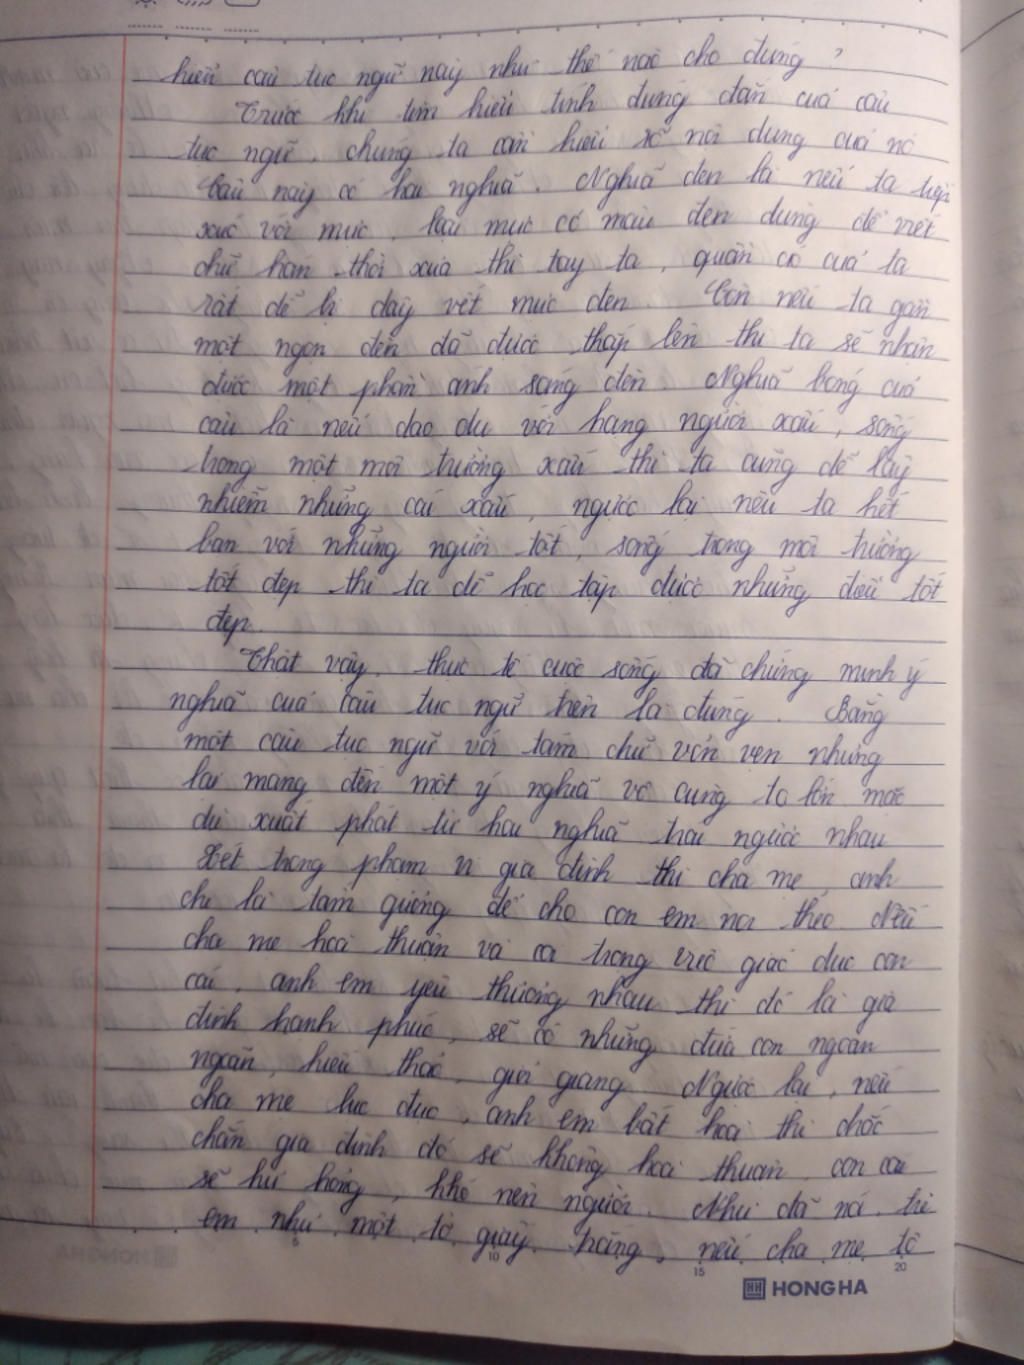 hiểu câu tục ngữ này như thế nào cho đúng ?
Trước khi tìm hiểu tính đúng đắn của câu
tục ngữ, chúng ta cần hiểu rõ nội dung của nó
Câu này có hai nghĩa. Nghĩa đen là nếu ta tiếp
xúc với mực, loại mực có màu đen dùng để viết
chữ hán thời xưa thì tay ta, quần áo của ta
rất dễ bị dây vết mực đen. Còn nếu ta gần
một ngọn đèn đã được thắp lên thì ta sẽ nhận
được một phần ánh sáng đèn. Nghĩa bóng của
câu là nếu giao du với hạng người xấu, sống
trong một môi trường xấu thì ta cũng dễ lây
nhiễm những cái xấu, ngược lại nếu ta kết
bạn với những người tốt, sống trong môi trường
tốt đẹp thì ta dễ học tập được những điều tốt
đẹp.
Thật vậy, thực tế cuộc sống đã chứng minh ý
nghĩa của câu tục ngữ trên là đúng. Bằng
một câu tục ngữ với tám chữ vỏn vẹn nhưng
lại mang đến một ý nghĩa vô cùng to lớn mặc
dù xuất phát từ hai nghĩa trái ngược nhau
Xét trong phạm vi gia đình thì cha mẹ, anh
chị là tấm gương để cho con em noi theo Nếu
cha mẹ hoà thuận và có trong việc giáo dục con
cái, anh em yêu thương nhau thì đó là gia
đình hạnh phúc, sẽ có những đứa con ngoan
ngoãn, hiếu thảo, giỏi giang Ngược lại, nếu
cha mẹ lục đục, anh em bất hoà thì chắc
chắn gia đình đó sẽ không hoà thuận, con cái
sẽ hư hỏng, khó nên người. Như đã nói, trẻ
em như một tờ giấy trắng, nếu cha mẹ tô
5 10 15 20
HH HONG HA